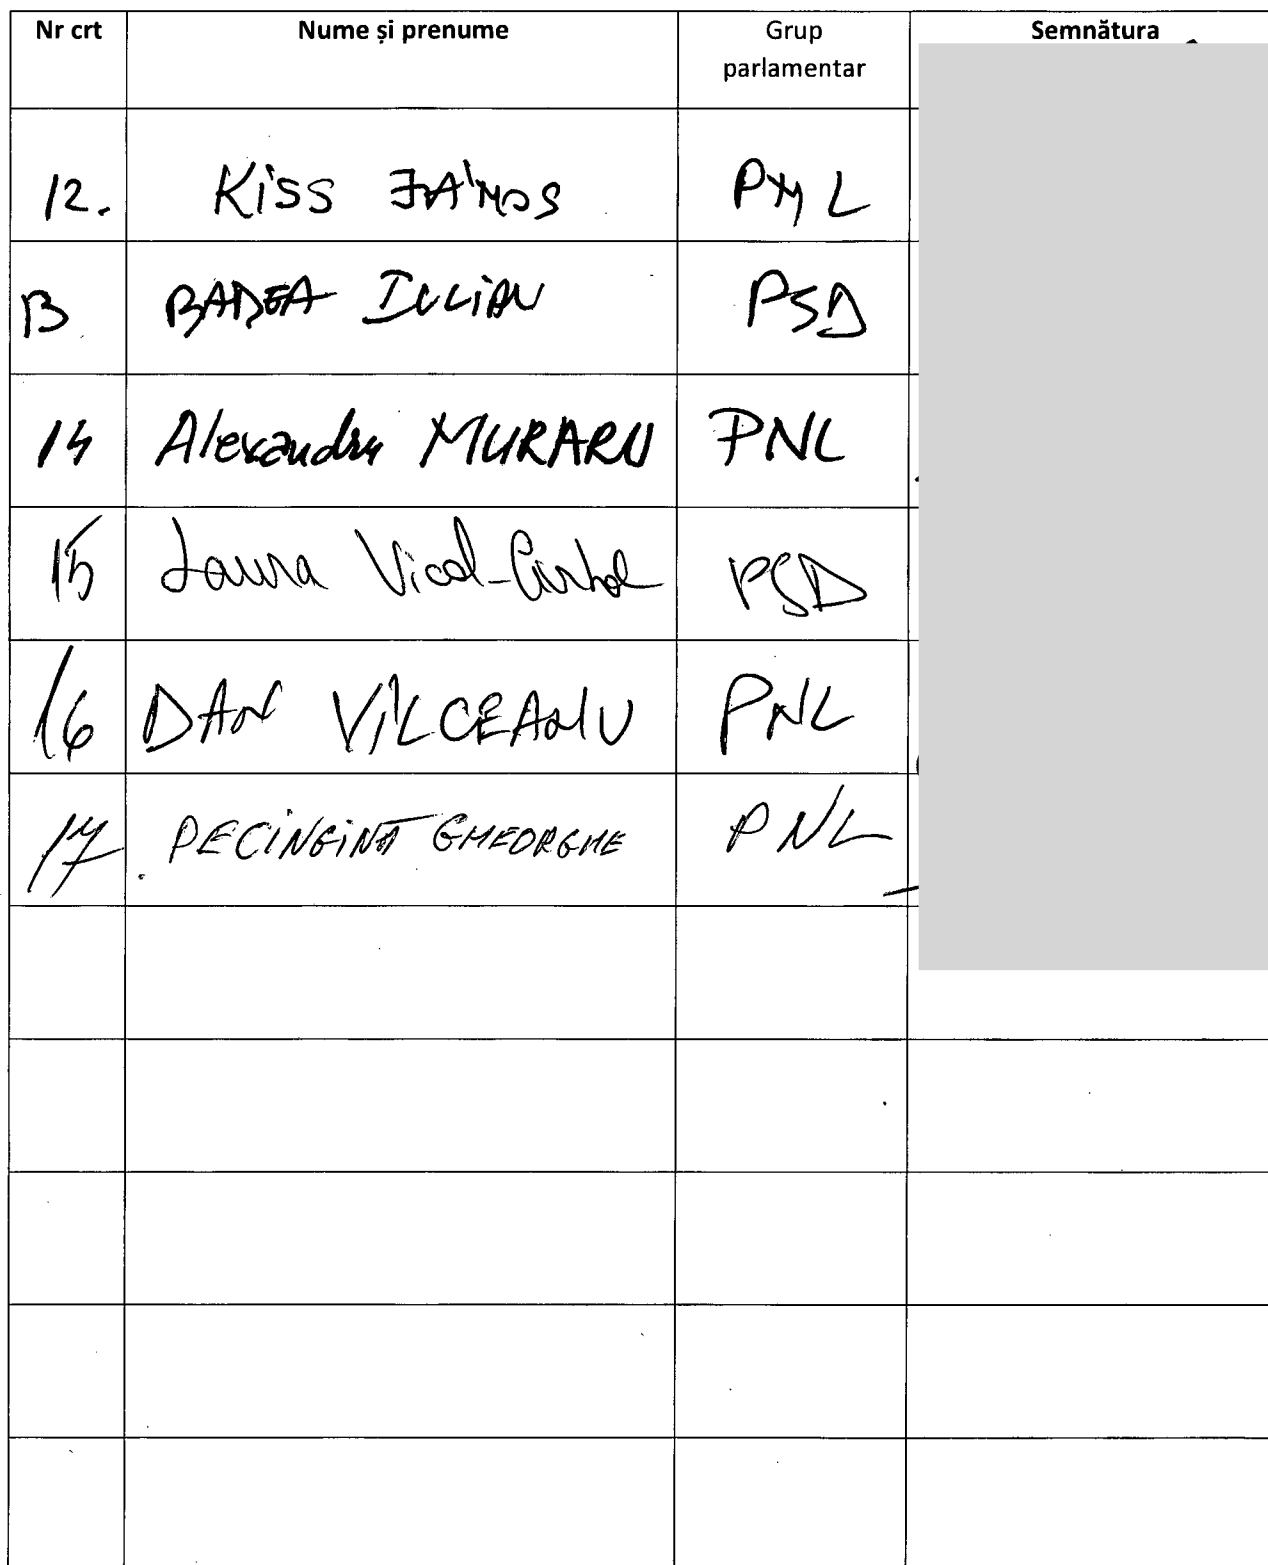 Nr crt Nume și prenume Grup parlamentar Semnătura
12. Kiss JÁNOS PNL
13 BADEA IULIAN PSD
14 Alexandru MURARU PNL
15 Laura Vicol-Ciorbă PSD
16 DAN VÎLCEANU PNL
17 PECINGINĂ GHEORGHE PNL